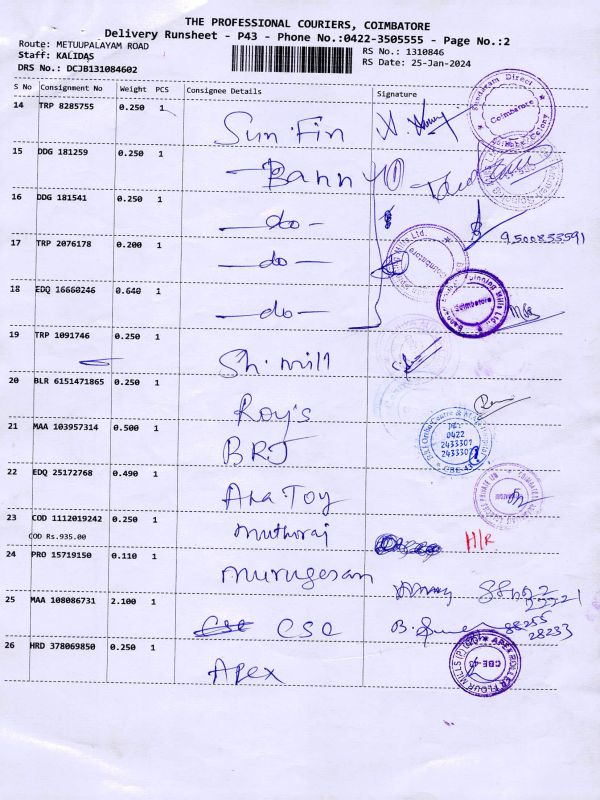 THE PROFESSIONAL COURIERS, COIMBATORE
Delivery Runsheet - P43 - Phone No.:0422-3505555 - Page No.:2
Route: METUUPALAYAM ROAD
Staff: KALIDAS
DRS No.: DCJB131084602
RS No.: 1310846
RS Date: 25-Jan-2024
S No Consignment No Weight PCS Consignee Details Signature
14 TRP 8285755 0.250 1 Sun Fin
15 DDG 181259 0.250 1 Banny
16 DDG 181541 0.250 1 -do- 9500833591
17 TRP 2076178 0.200 1 -do-
18 EDQ 16660246 0.640 1 -do-
19 TRP 1091746 0.250 1 Sh. mill
20 BLR 6151471865 0.250 1 Roy's
21 MAA 103957314 0.500 1 BRJ
0422
2433301
22 EDQ 25172768 0.490 1 Ara Toy
23 COD 1112019242 0.250 1 Muthuraj H/R
COD Rs.935.00
24 PRO 15719150 0.110 1 Murugesan
25 MAA 108086731 2.100 1 CSC
28233
26 HRD 378069850 0.250 1 Apex
APEX ROLLER FLOUR MILLS (P) LTD
CBE-43